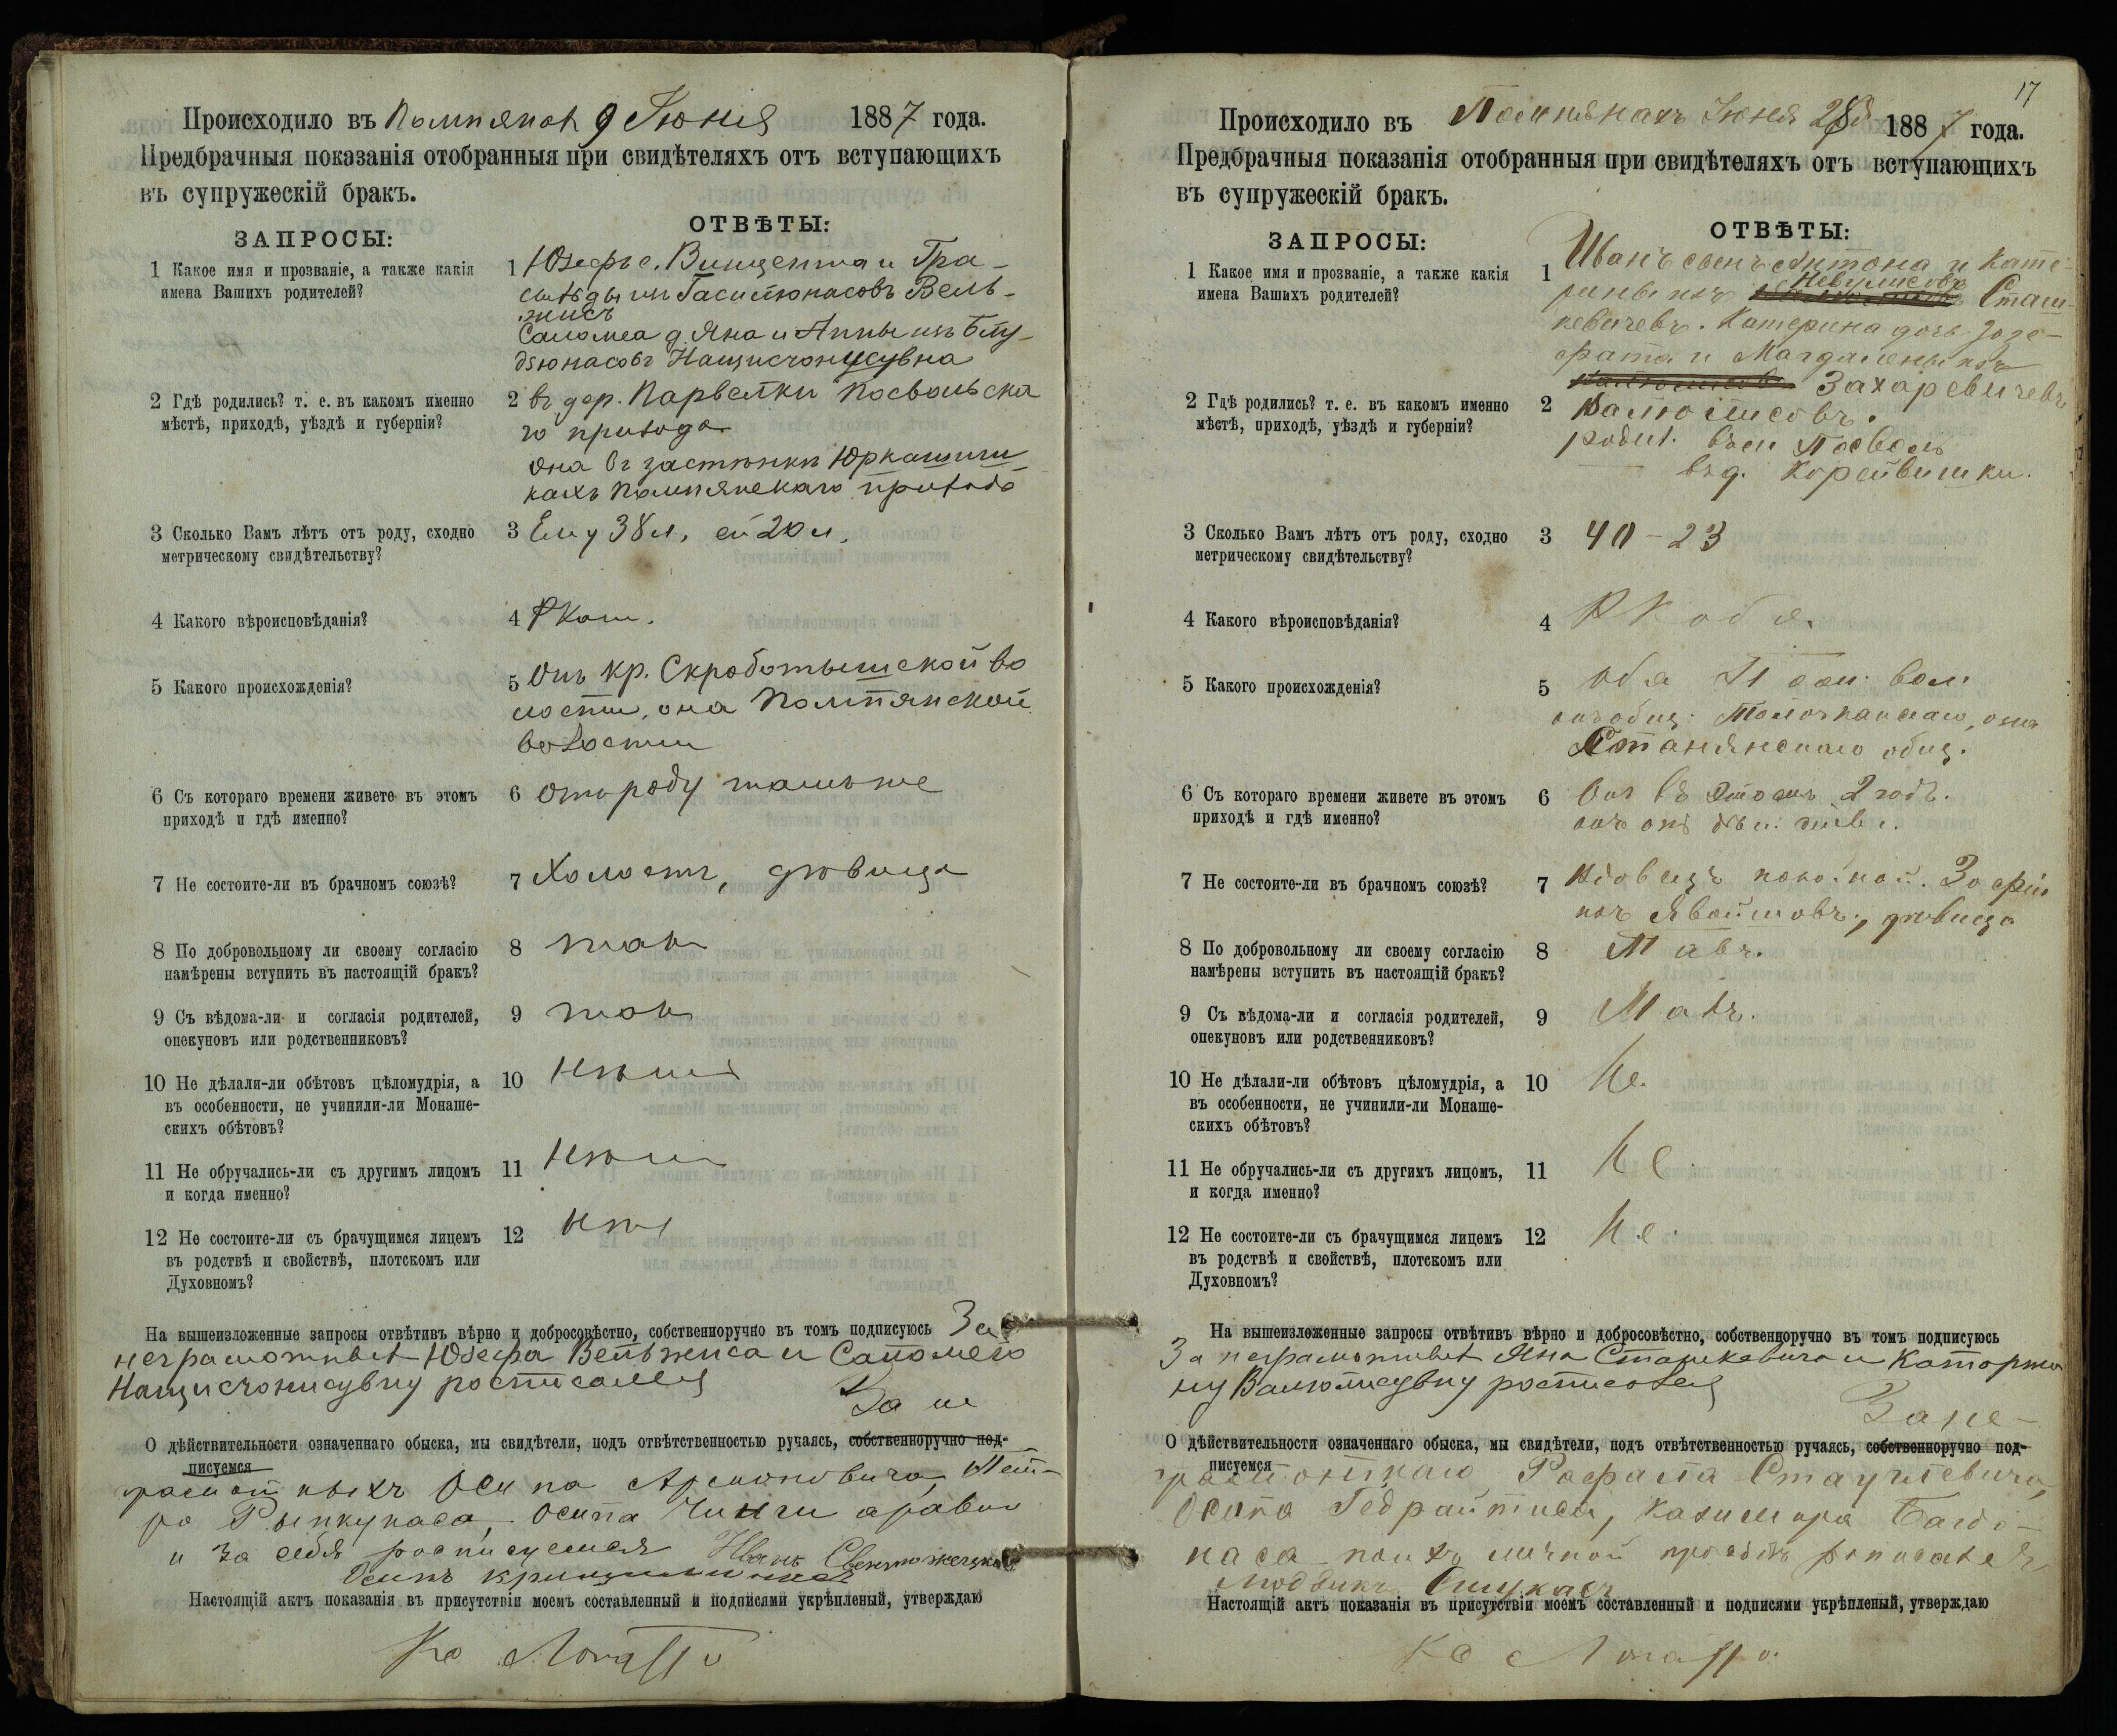 Происходило въ Помпянах 9 Іюня 1887 года.
Предбрачныя показанія отобранныя при свидѣтеляхъ отъ вступающихъ
въ супружескій бракъ.
ЗАПРОСЫ:
ОТВѢТЫ:
1 Какое имя и прозваніе, а также какія
имена Вашихъ родителей?
1 Юзефъ с. Винцента и Гра-
Вель-
жисъ
Саломеа д. Яна и Анны изъ
2 Гдѣ родились? т. е. въ какомъ именно
мѣстѣ, приходѣ, уѣздѣ и губерніи?
2 въ дер. Парвелки Посвольска
го прихода
она въ застѣнкѣ Юркашиш
кахъ Помпянскаго прихода
3 Сколько Вамъ лѣтъ отъ роду, сходно
метрическому свидѣтельству?
3 Ему 38 л. ей 20 л.
4 Какого вѣроисповѣданія?
4 РКат.
5 Какого происхожденія?
5 Онъ кр. Скроботышской во
лости, она Помпянской
волости
6 Съ котораго времени живете въ этомъ
приходѣ и гдѣ именно?
6 отъ роду тамъ же
7 Не состоите-ли въ брачномъ союзѣ?
7 Холостъ, дѣвица
8 По добровольному ли своему согласію
намѣрены вступить въ настоящій бракъ?
8 такъ
9 Съ вѣдома-ли и согласія родителей,
опекуновъ или родственниковъ?
9 такъ
10 Не дѣлали-ли обѣтовъ цѣломудрія, а
въ особенности, не учинили-ли Монаше-
скихъ обѣтовъ?
10 нѣтъ
11 Не обручались-ли съ другимъ лицомъ
и когда именно?
11 нѣтъ
12 Не состоите-ли съ брачущимся лицемъ
въ родствѣ и свойствѣ, плотскомъ или
Духовномъ?
12 нѣтъ
На вышеизложенные запросы отвѣтивъ вѣрно и добросовѣстно, собственноручно въ томъ подписуюсь За
неграмотныхъ Юзефа Вельжиса и Саломею
росписался
За не
О дѣйствительности означеннаго обыска, мы свидѣтели, подъ отвѣтственностью ручаясь, собственноручно под-
писуемся
грамотныхъ Осипа Пет-
ра Осипа
и за себя росписуемся Иванъ
Осипъ
Настоящій актъ показанія въ присутствіи моемъ составленный и подписями укрѣпленый, утверждаю
17
Происходило въ Помпянахъ Іюня 28 1887 года.
Предбрачныя показанія отобранныя при свидѣтеляхъ отъ вступающихъ
въ супружескій бракъ.
ЗАПРОСЫ:
ОТВѢТЫ:
1 Какое имя и прозваніе, а также какія
имена Вашихъ родителей?
1 Иванъ сынъ Антона и Кате-
рины изъ Сташ-
кевичевъ. Катерина дочь Юзе-
фата и Магдалены изъ
Захаревичевъ
2 Гдѣ родились? т. е. въ какомъ именно
мѣстѣ, приходѣ, уѣздѣ и губерніи?
2 Валюлисовъ.
родил. въ м Посволь
въ д. Корейвишки.
3 Сколько Вамъ лѣтъ отъ роду, сходно
метрическому свидѣтельству?
3 40 – 23
4 Какого вѣроисповѣданія?
4 РК оба.
5 Какого происхожденія?
5 оба вол.
она
общ.
6 Съ котораго времени живете въ этомъ
приходѣ и гдѣ именно?
6 Онъ въ этомъ 2 годъ.
7 Не состоите-ли въ брачномъ союзѣ?
7 Вдовецъ покойной Зофіи
изъ дѣвица
8 По добровольному ли своему согласію
намѣрены вступить въ настоящій бракъ?
8 Такъ.
9 Съ вѣдома-ли и согласія родителей,
опекуновъ или родственниковъ?
9 Такъ.
10 Не дѣлали-ли обѣтовъ цѣломудрія, а
въ особенности, не учинили-ли Монаше-
скихъ обѣтовъ?
10 Не.
11 Не обручались-ли съ другимъ лицомъ,
и когда именно?
11 Не
12 Не состоите-ли съ брачущимся лицемъ
въ родствѣ и свойствѣ, плотскомъ или
Духовномъ?
12 Не.
На вышеизложенные запросы отвѣтивъ вѣрно и добросовѣстно, собственноручно въ томъ подписуюсь
За неграмотныхъ Яна Сташкевича и Катаржи
ну Валюлисувну росписался
За не-
О дѣйствительности означеннаго обыска, мы свидѣтели, подъ отвѣтственностью ручаясь, собственноручно под-
писуемся
Рафала
Осипа Гедрайтиса, Казимира Багдо-
наса по ихъ личной просьбѣ росписался
Настоящій актъ показанія въ присутствіи моемъ составленный и подписями укрѣпленый, утверждаю